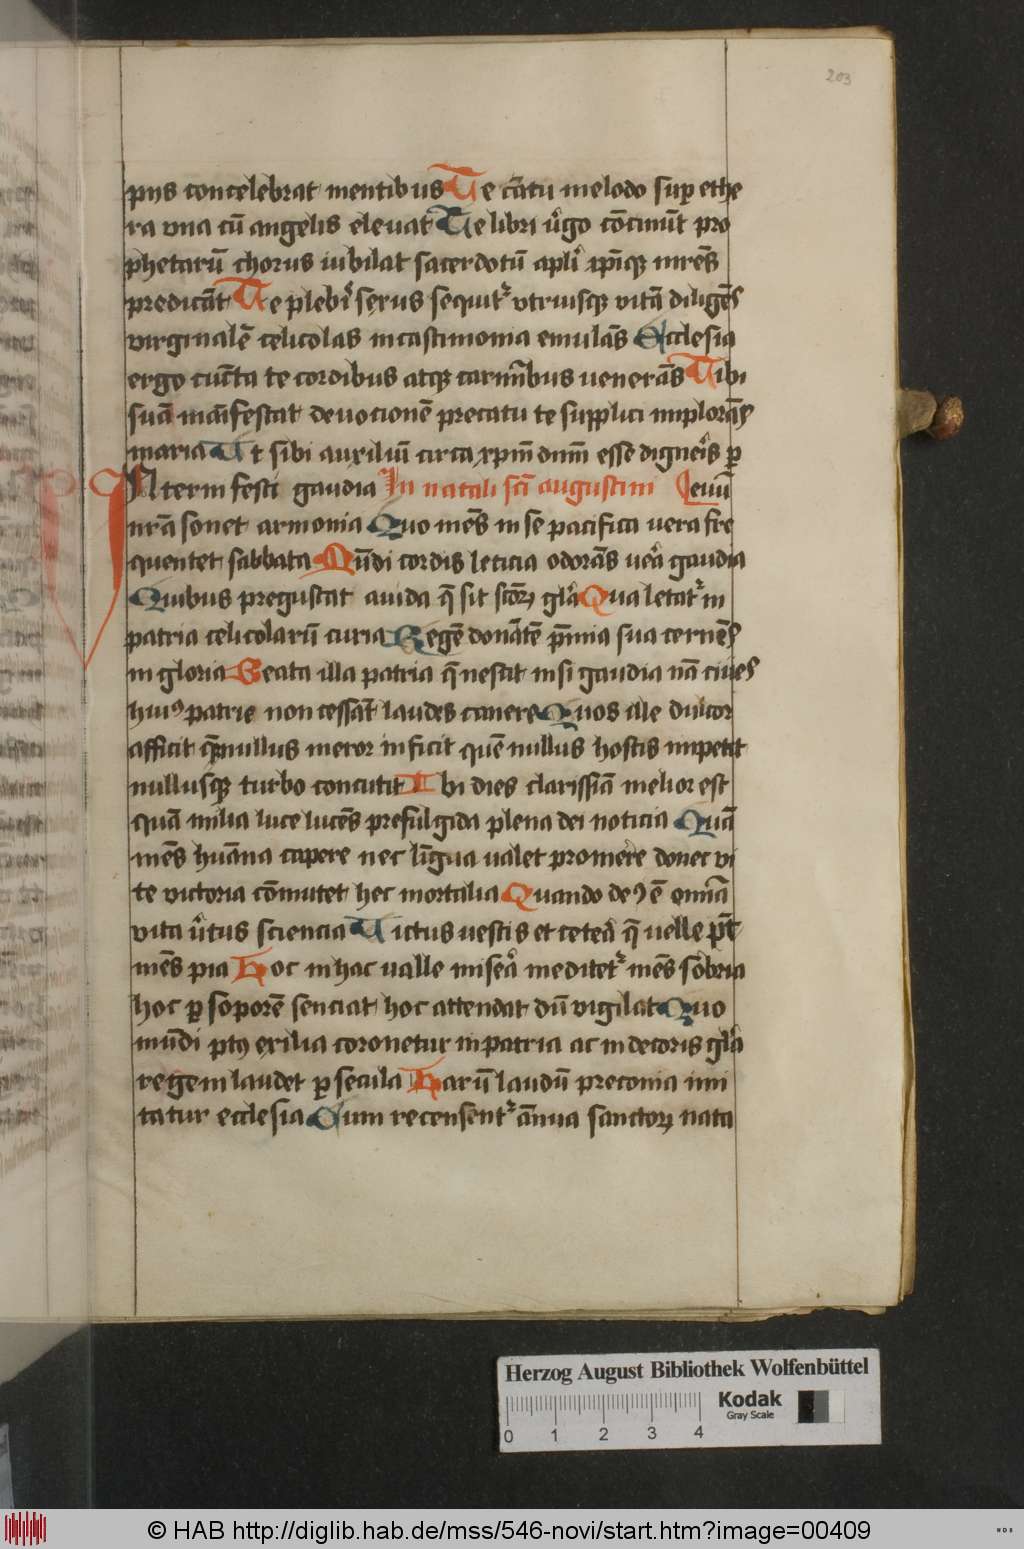 203
pijs concelebrat mentibus Te cātu melodo suꝑ ethe
ra vna cū angelis eleuat Te libri v̾go cōcinūt pro
phetarū chorus iubilat sacerdotū apli xp̄iqꝫ mr̄es
predicāt Te plebiˢ sexus sequit᷑ vtriusqꝫ vitā diligēs
virginalē celicolas in castimonia emulās Ecclesia
ergo cūcta te cordibus atqꝫ carmībus venerās Tibi
suā māifestat deuocionē precatu te supplici implorās
maria Ut sibi auxiliū circa xpm̄ dnm̄ esse digneris ꝑ
INterni festi gaudia In natali sc̄i augustini Leuū
nrā sonet armonia Quo mēs in se pacifica vera fre
quentet sabbata Mūdi cordis leticia odorās ūa gaudia
Quibus pregustat auida q̄ sit scōꝝ glā Qua letat᷑ in
patria celicolarū curia Regē donātē p̄mia sua cernēs
in gloria Beata illa patria q̄ nescit nisi gaudia nā ciues
huiꝰ patrie non cessāt laudes canere Quos ille dulcor
afficit quē nullus meror inficit quē nullus hostis impetit
nullusqꝫ turbo concutit Ibi dies clarissīa melior est
quā milia luce lucēs prefulgida plena dei noticia Quā
mēs huāna capere nec līgua valet promere donec vi
te victoria cōmutet hec mortalia Quando deꝰ ē omīa
vita v̾tus sciencia Uictus vestis et cetēa q̄ velle pōt
mēs pia Hoc in hac valle misēa meditet᷑ mēs sobria
hoc ꝑ soporē senciat hoc attendat dū vigilat Quo
mūdi ptꝰ exilia coronetur in patria ac in decoris glā
regem laudet ꝑ secula Harū laudū preconia imi
tatur ecclesia Cum recensent᷑ ānua sanctoꝝ nata
Herzog August Bibliothek Wolfenbüttel
Kodak
Gray Scale
0 1 2 3 4
© HAB http://diglib.hab.de/mss/546-novi/start.htm?image=00409